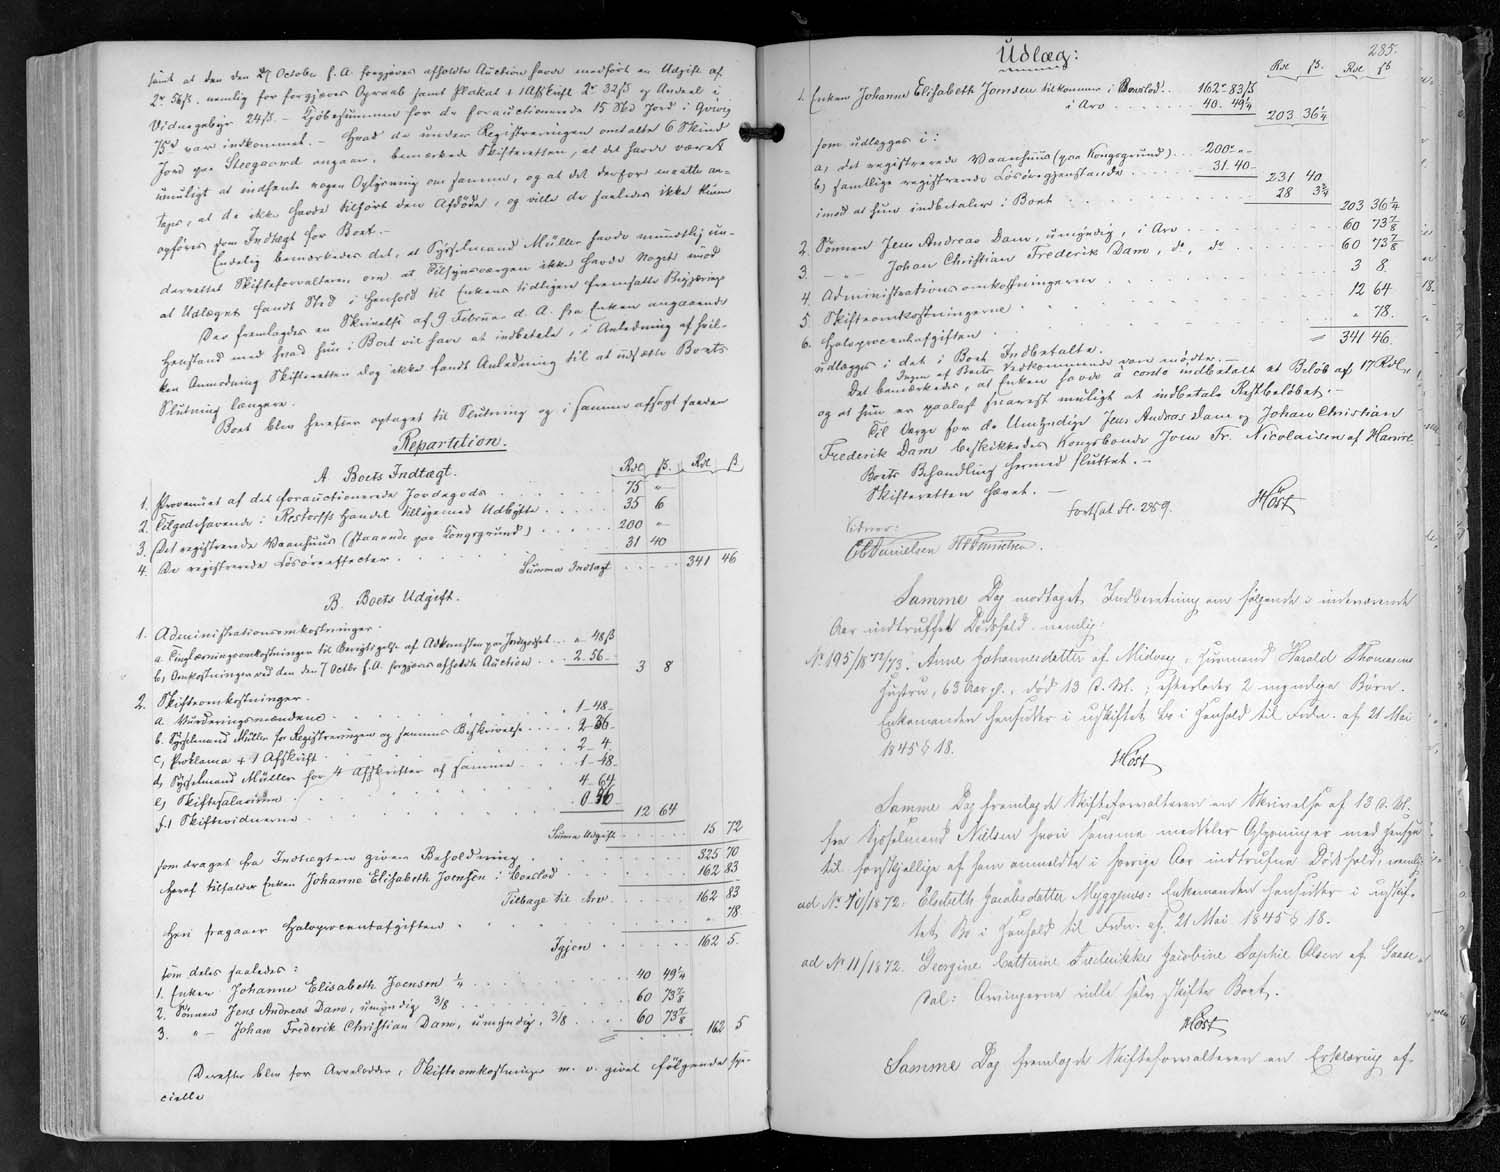 samt at den den 27 October f. A. foregivne afholdte Auction havde medført en Udgift af
2r 56ß. nemlig for forgjæves Opraab samt Plakat + 1 Afskrift 2r 32ß og Andeel i
Vidnegebyr 24ß. – Kjöbesummen for de forauctionerede 15 Skd Jord i
75d var indkommet. – Hvad de under Registreringen omtalte 6 Skind
Jord paa Steegaard angaar, bemærkede Skifteretten, at det havde været
umuligt at indhente nogen Oplysning om samme, og at det derfor maatte an-
tages, at de ikke havde tilhørt den Afdöde, og ville de saaledes ikke kunne
opføres som Indtægt for Boet. –
Endelig bemærkedes det, at Sysselmand Müller havde mundtlig un-
derrettet Skifteforvalteren om at Tilsynsværgen ikke havde Noget imod
at Udlæget fandt Sted i Henhold til Enkens tidligere fremsatte Begjæring
Der fremlagdes en Skrivelse af 9 Februar d. A. fra Enken angaaende
Henstand med hvad hun i Boet vil have at indbetale, i Anledning af hvil-
ken Anmodning Skifteretten dog ikke fandt Anledning til at udsætte Boets
Slutning længere.
Boet blev herefter optaget til Slutning og i samme afsagt saadan
Repartition.
A Boets Indtægt. Rdl ß. Rdl ß
1. Provenuet af det forauctionerede Jordegods . . . 75 "
2. Tilgodehavende i Restorffs Handel tilligemed Udbytte . . . 35 6
3. Det registrerede Vaanhuus (staaende paa Kongsgrund) . . . 200 "
4. De registrerede Lösöreeffecter . . . 31 40
Summa Indtægt . . . 341 46
B. Boets Udgift.
1. Administrationsomkostninger.
a. Tinglæsningsomkostninger til Berigtigelse af Adkomsten paa Jordgodset . . " 48ß
b, Omkostninger ved den 27 Octbr f. A. forgjæves afholdte Auction . . . 2. 56. 3 8
2. Skifteomkostninger.
a. Vurderingsmændene . . . 1–48–
b. Sysselmand Müller for Registreringen og sammes Beskrivelse . . . 2–36–
c, Proklama + 1 Afskrift . . . 2–4
d, Sysselmand Müller for 4 Afskrifter af samme . . . 1–48–
e, Skiftesalarium . . . 4–64
f, Skiftevidnerne . . . 0 56 12 64
Summa Udgift . . . 15 72
som draget fra Indtægten giver Beholdning . . . 325 70
Heraf tilfalder Enken Johanne Elisabeth Joensen i Corslod . . . 162 83
Tilbage til Arv . . . 162 83
Heri fragaaer Halvprocentafgiften . . . " 78
Igjen . . . 162 5.
som deles saaledes:
1. Enken Johanne Elisabeth Joensen 1/4 . . . 40 49 1/4
2. Sönnen Jens Andreas Dam, umyndig 3/8 . . . 60 73 7/8
3. " – Johan Frederik Christian Dam, umyndig, 3/8 . . . 60 73 7/8 162 5
Derefter blev for Arvelodder, Skifteomkostninger m. v. givet følgende spe-
cielle
285.
Udlæg: Rdl ß. Rdl ß
1. Enken Johanne Elisabeth Joensen tilkommer i Boeslod . . 162r 83ß
i Arv . . . 40. 49 1/4 203 36 1/4
som udlægges i:
a, det registrerede Vaanhuus (paa Kongsgrund) . . . 200r "–
b, samtlige registrerede Lösöregjenstande . . . 31. 40. 231 40
imod at hun indbetaler i Boet . . . 28 3 3/4 203 36 1/4
2. Sönnen Jens Andreas Dam, umyndig, i Arv . . . 60 73 7/8
3. – " – Johan Christian Frederik Dam, do, do . . . 60 73 7/8
4. Administrationsomkostningerne . . . 3 8.
5. Skifteomkostningerne . . . 12 64
6. Halvprocentafgiften . . . " 78.
udlægges i det i Boet Indbetalte. 341 46.
Ingen af Boets Vedkommende vare mødte. –
Det bemærkedes, at Enken havde à conto indbetalt et Beløb af 17 Rdl.
og at hun er paalagt snarest muligt at indbetale Restbeløbet. –
Til Værge for de Umyndige Jens Andreas Dam og Johan Christian
Frederik Dam beskikkedes Kongsbonde Joen Fr. Nicolaisen af
Boets Behandling hermed sluttet. –
Skifteretten hævet. –
Fortsat fl. 289. Høst
Vidner:
Danielsen
Samme Dag modtaget Indberetning om følgende i indeværende
Aar indtrufne Dödsfald nemlig:
No 195/1872/73. Anne Johannesdatter af Midvaag, Huusmand Harald Thomasens
Hustru, 63 Aar gl., död 13 d. M.; efterlader 2 myndige Börn.
Enkemanden hensidder i uskiftet Bo i Henhold til Frdn. af 21 Mai
1845 § 18.
Høst
Samme Dag fremlagde Skifteforvalteren en Skrivelse af 13 d. M.
fra Sysselmand Nielsen hvori samme meddeler Oplysninger med Hensyn
til forskjellige af ham anmeldte i forrige Aar indtrufne Dödsfald, nemlig
ad No 10/1872: Elsebeth Jacobsdatter Myggenæs: Enkemanden hensidder i uskif-
tet Bo i Henhold til Frdn. af 21 Mai 1845 § 18.
ad No 11/1872. Georgine Cathrine Frederikke Jacobine Sophie Olsen af Gaase-
dal: Arvingerne ville selv skifte Boet.
Høst
Samme Dag fremlagde Skifteforvalteren en Erklæring af